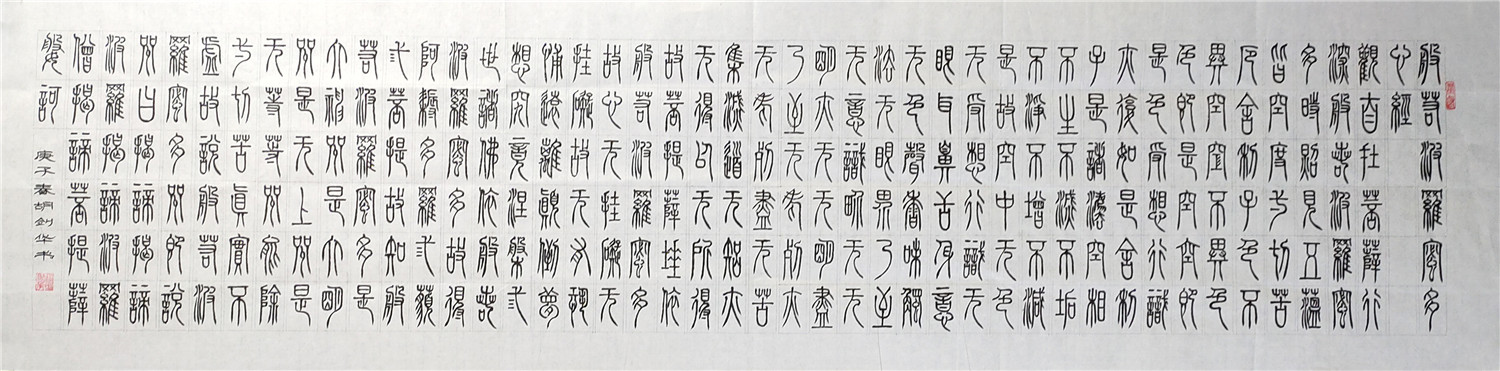 般若波羅蜜多
心經
觀自在菩薩行
深般若波羅蜜
多時照見五蘊
皆空度一切苦
厄舍利子色不
異空空不異色
色即是空空即
是色受想行識
亦復如是舍利
子是諸法空相
不生不滅不垢
不淨不增不減
是故空中无色
无受想行識无
眼耳鼻舌身意
无色聲香味觸
法无眼界乃至
无意識界无无
明亦无无明盡
乃至无老死亦
无老死盡无苦
集滅道无智亦
无得以无所得
故菩提薩埵依
般若波羅蜜多
故心无罣礙无
罣礙故无有恐
怖遠離顛倒夢
想究竟涅槃弎
世諸佛依般若
波羅蜜多故得
阿耨多羅弎藐
弎菩提故知般
若波羅蜜多是
大神咒是大明
咒是无上咒是
无等等咒能除
一切苦真實不
虛故說般若波
羅蜜多咒即說
咒曰揭諦揭諦
波羅揭諦波羅
僧揭諦菩提薩
婆訶
庚子春胡劍华书